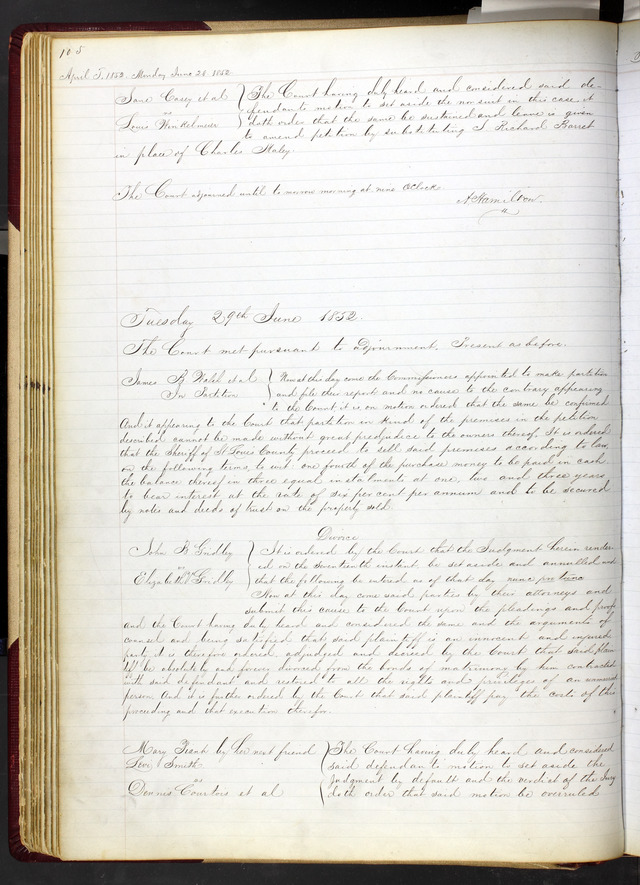 105
April T. 1852. Monday June 28. 1852
Jane Casey et al
vs
Louis Winkelmeier
The Court having duly heard and considered said de-
fendants motion to set aside the nonsuit in this case. It
doth order that the same be sustained and leave is given
to amend petition by substituting J Richard Barret
in place of Charles Haley.
The Court adjourned until to morrow morning at nine Oclock.
A Hamilton.
Tuesday 29th June 1852.
The Court met pursuant to adjournment. Present as before.
James R Walsh et al
In Partition
Now at this day come the Commissioners appointed to make partition
and file their report and no cause to the contrary appearing
to the Court it is on motion ordered that the same be confirmed
And it appearing to the Court that partition in kind of the premises in the petition
described cannot be made without great prejudice to the owners thereof. It is ordered
that the Sheriff of St Louis County proceed to sell said premises according to law,
on the following terms, to wit one fourth of the purchase money to be paid in cash
the balance thereof in three equal instalments at one, two and three years
to bear interest at the rate of six per cent per annum and to be secured
by notes and deeds of trust on the property sold.
Divorce
John R Gridley
vs
Elizabeth Gridley
It is ordered by the Court that the Judgment herein render-
ed on the seventeenth instant be set aside and annulled and
that the following be entered as of that day nunc pro tunc
Now at this day come said parties by their attorneys and
submit this cause to the Court upon the pleadings and proofs
and the Court having duly heard and considered the same and the arguments of
counsel and being satisfied that said plaintiff is an innocent and injured
party it is therefore ordered, adjudged and decreed by the Court that said plain-
tiff be absolutely and forever divorced from the bonds of matrimony by him contracted
with said defendant and restored to all the rights and privileges of an unmarried
person. And it is further ordered by the Court that said plaintiff pay the costs of this
proceeding and that execution therefor.
Mary Frank by her next friend
Levi Smith
vs
Dennis Courtois et al
The Court having duly heard and considered
said defendants motion to set aside the
Judgment by default and the verdict of the Jury
doth order that said motion be overruled